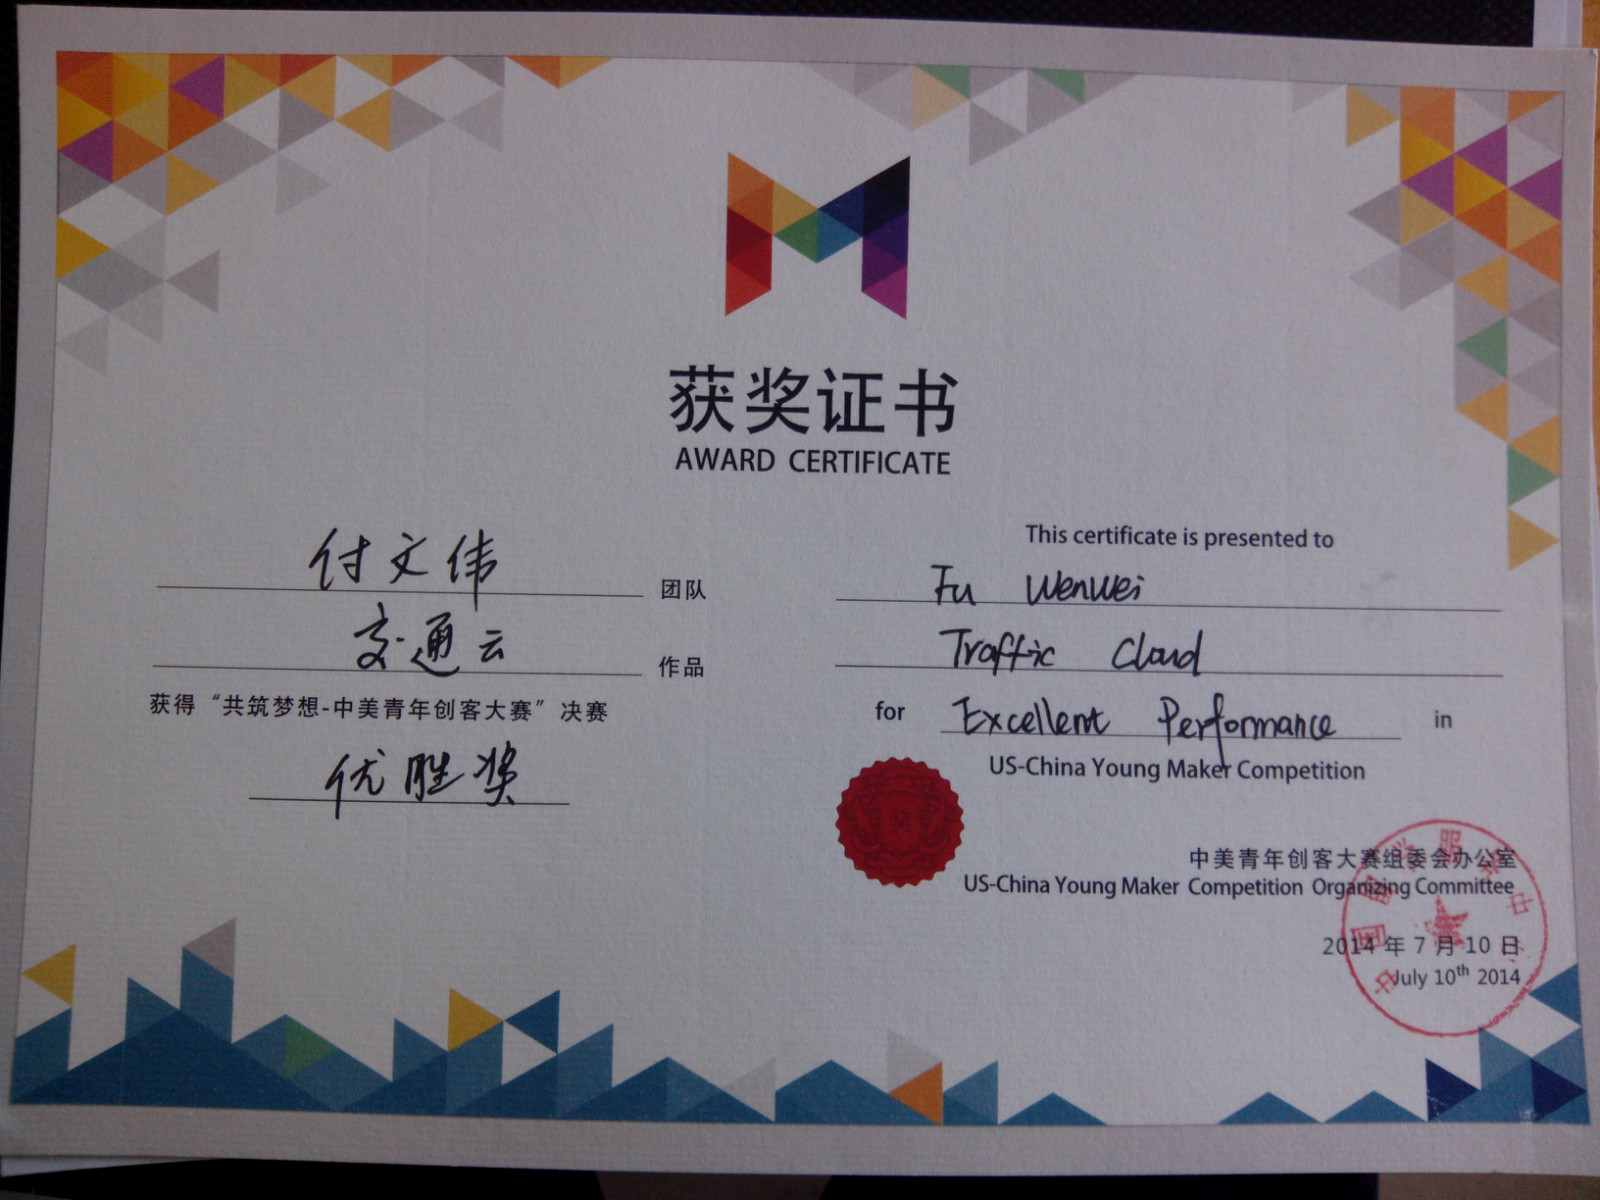 获奖证书
AWARD CERTIFICATE
付文伟 团队
交通云 作品
获得“共筑梦想-中美青年创客大赛”决赛
优胜奖
This certificate is presented to
Fu WenWei
Traffic Cloud
for Excellent Performance in
US-China Young Maker Competition
奖
中美青年创客大赛组委会办公室
US-China Young Maker Competition Organizing Committee
2014 年 7 月 10 日
July 10th 2014
中国留学服务中